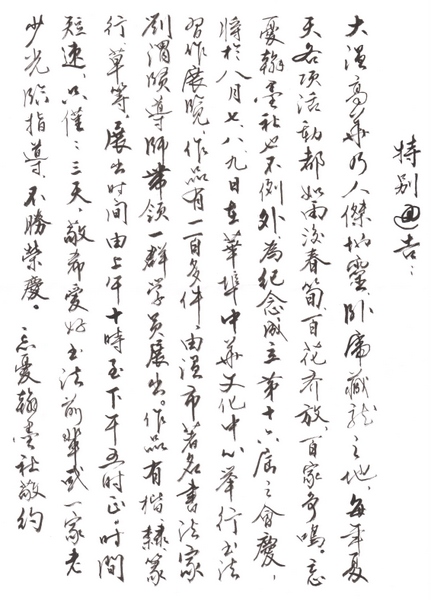 特别通告：
大温高華乃人傑地靈、卧虎藏龍之地、每年夏
天各項活動都如雨後春筍、百花齐放、百家争鳴。忘
憂翰墨社也不例外、為紀念成立第十六届之會慶，
将於八月七、八、九日在華埠中華文化中心举行书法
習作展覽、作品有一百多件、由温市著名書法家
劉渭賢導師带領一群学員展出。作品有楷隸篆
行、草等、展出时间由上午十時至下午五时正。时間
短速、只僅々三天、敬希爱好书法前輩或一家老
少光臨指導、不勝榮慶。 忘憂翰墨社敬约